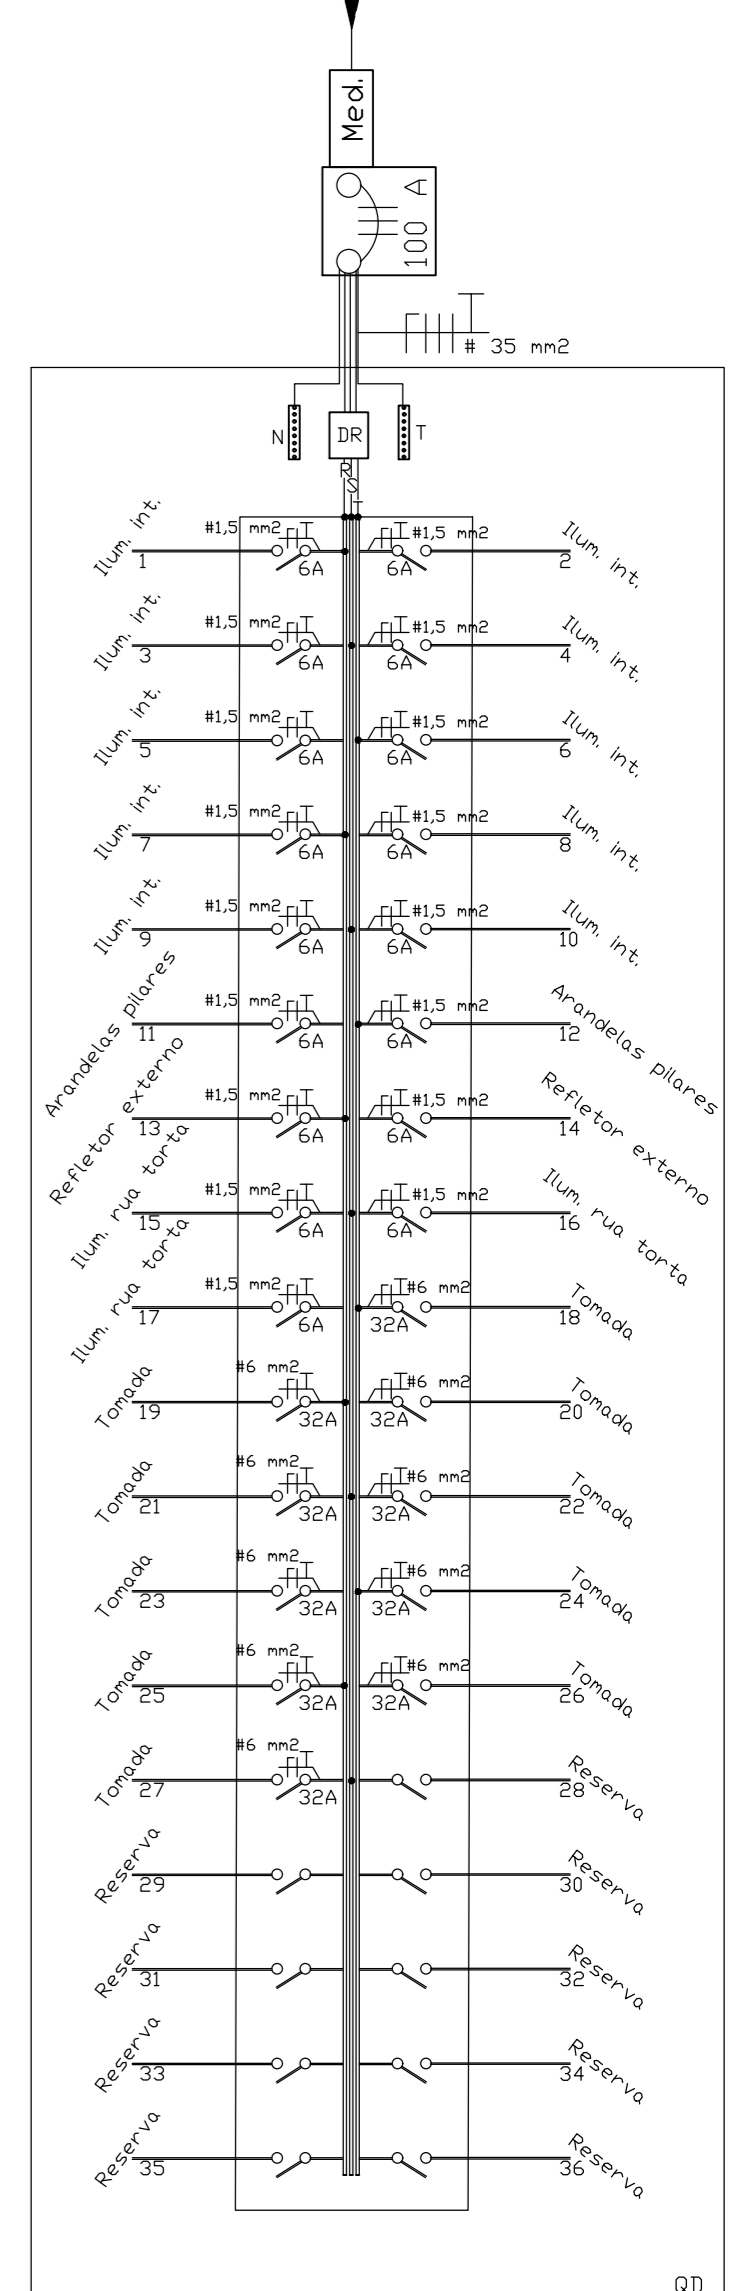 Med.
100 A
# 35 mm2
N
DR
T
R
S
T
Ilum. int.
1
#1,5 mm2
6A
6A
#1,5 mm2
2
Ilum. int.
Ilum. int.
3
#1,5 mm2
6A
6A
#1,5 mm2
4
Ilum. int.
Ilum. int.
5
#1,5 mm2
6A
6A
#1,5 mm2
6
Ilum. int.
Ilum. int.
7
#1,5 mm2
6A
6A
#1,5 mm2
8
Ilum. int.
Ilum. int.
9
#1,5 mm2
6A
6A
#1,5 mm2
10
Ilum. int.
Arandelas pilares
11
#1,5 mm2
6A
6A
#1,5 mm2
12
Arandelas pilares
Refletor externo
13
#1,5 mm2
6A
6A
#1,5 mm2
14
Refletor externo
Ilum. rua torta
15
#1,5 mm2
6A
6A
#1,5 mm2
16
Ilum. rua torta
Ilum. rua torta
17
#1,5 mm2
6A
32A
#6 mm2
18
Tomada
Tomada
19
#6 mm2
32A
32A
#6 mm2
20
Tomada
Tomada
21
#6 mm2
32A
32A
#6 mm2
22
Tomada
Tomada
23
#6 mm2
32A
32A
#6 mm2
24
Tomada
Tomada
25
#6 mm2
32A
32A
#6 mm2
26
Tomada
Tomada
27
#6 mm2
32A
28
Reserva
Reserva
29
30
Reserva
Reserva
31
32
Reserva
Reserva
33
34
Reserva
Reserva
35
36
Reserva
QD